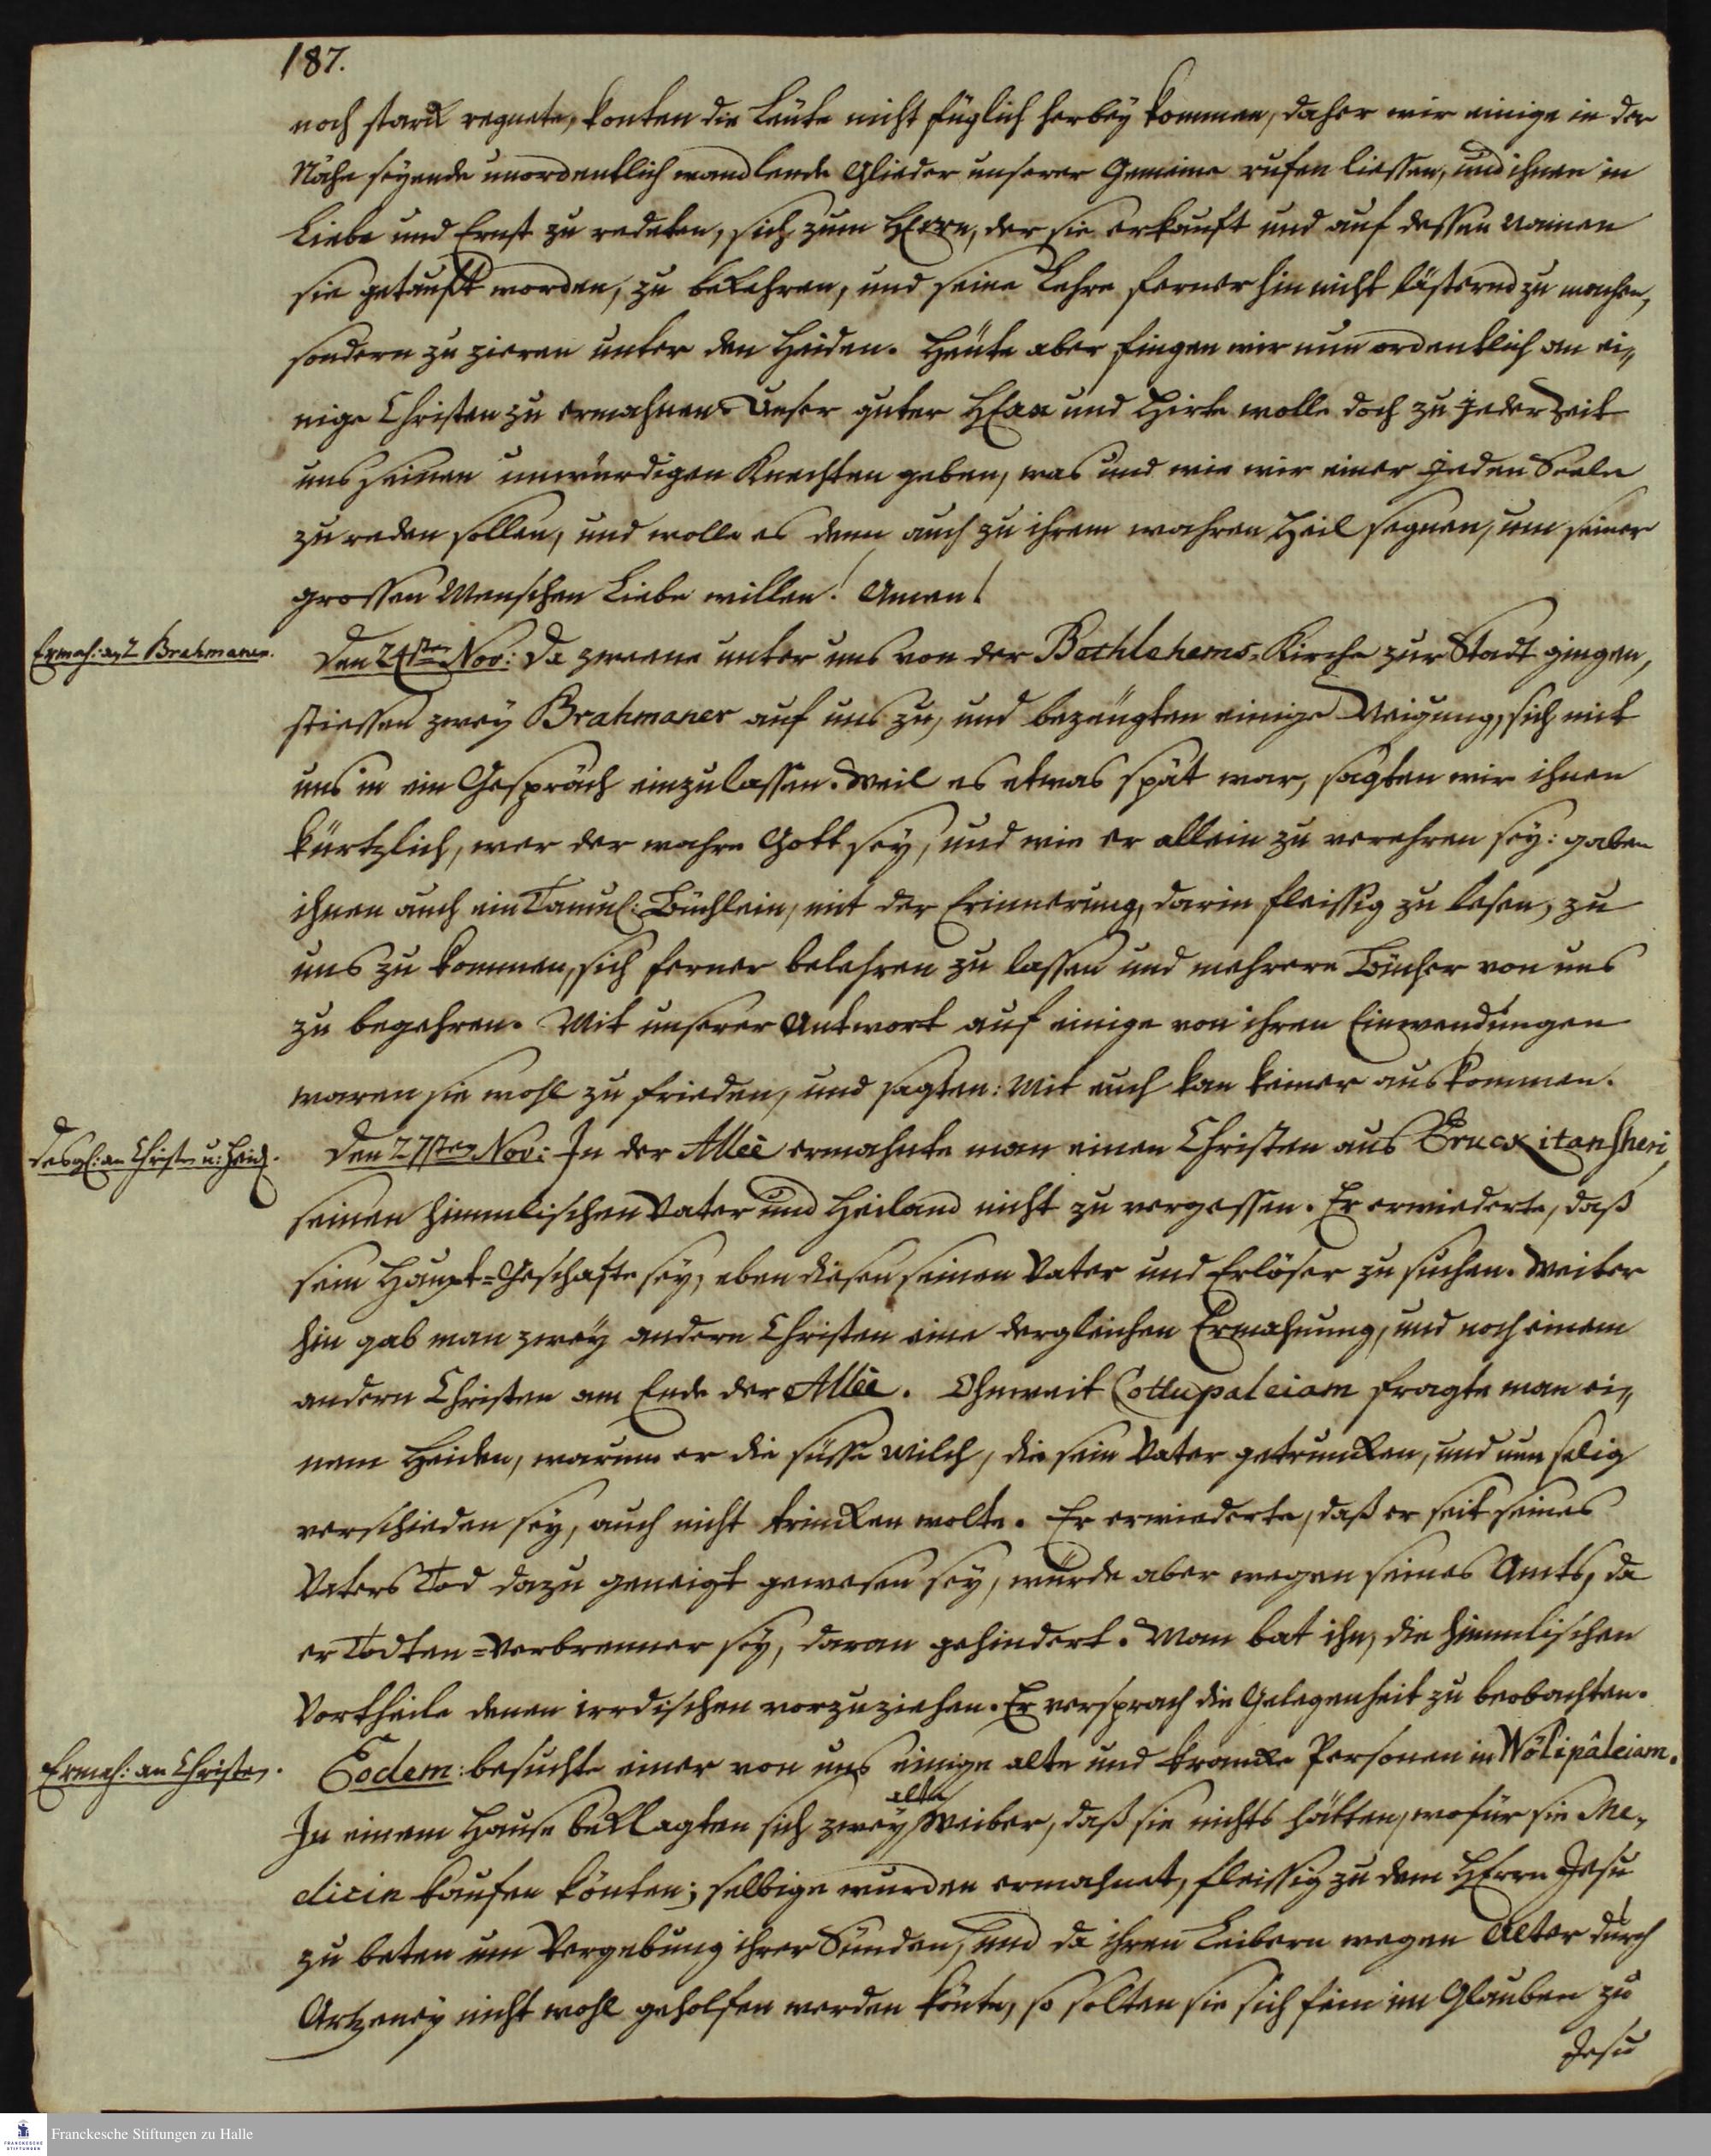 187.
noch starck regnete, konten die Leute nicht füglich herbey kommen, daher wir einige in der
Nähe seyende unordentlich wandlende Glieder unserer Gemeine rufen liessen, und ihnen in
Liebe und Ernst zu redeten, sich zum HErrn, der sie erkauft und auf dessen Namen
sie getauft worden, zu bekehren, und seine Lehre ferner hin nicht lästernd zu machen,
sondern zu zieren unter den Heiden. Heute aber fingen wir nun ordentlich an ei„
nige Christen zu ermahnen. Unser guter HErr und Hirte wolle doch zu jeder Zeit
uns seinen unwürdigen Knechten geben, was und wie wir einer jeden Seele
zu reden sollen, und wolle es denn auch zu ihrem wahren Heil segnen, um seiner
grossen Menschen Liebe willen! Amen!
Ermah: an 2 Brahmaner.
Den 24sten Nov: Da zweene unter uns von der Bethlehems-Kirche zur Stadt gingen,
stiessen zwey Brahmaner auf uns zu, und bezeugten einige Neigung, sich mit
uns in ein Gespräch einzulassen. Weil es etwas spät war, sagten wir ihnen
kürtzlich, wer der wahre Gott sey, und wie er allein zu verehren sey: gaben
ihnen auch ein Tamul: Büchlein, mit der Erinnerung, darin fleissig zu lesen, zu
uns zu kommen, sich ferner belehren zu lassen und mehrere Bücher von uns
zu begehren. Mit unserer Antwort auf einige von ihren Einwendungen
waren sie wohl zu frieden, und sagten: Mit euch kan keiner auskommen.
Desgl: an Christen u: Heid.
Den 27sten Nov: In der Allee ermahnte man einen Christen aus Erukitanscheri,
seinen himmlischen Vater und Heiland nicht zu vergessen. Er erwiederte, daß
sein Haupt=Geschäfte sey, eben diesen seinen Vater und Erlöser zu suchen. Weiter
hin gab man zwey andern Christen eine dergleichen Ermahnung, und noch einem
andern Christen am Ende der Allee. Ohnweit Cottupaleiam fragte man ei„
nem Heiden, warum er die süsse Milch, die sein Vater getruncken, und nun selig
verschieden sey, auch nicht trincken wolte. Er erwiederte, daß er seit seines
Vaters Tod dazu geneigt gewesen sey, würde aber wegen seines Amts, da
er Todten=Verbrenner sey, daran gehindert. Man bat ihn, die himmlischen
Vortheile denen irrdischen vorzuziehen. Er versprach die Gelegenheit zu beobachten.
Ermah: an Christen.
Eodem: besuchte einer von uns einige alte und krancke Personen in Wölipâleiam.
In einem Hause beklagten sich zwey alte Weiber, daß sie nichts hätten, wofür sie Me„
dicin kaufen könten; selbige wurden ermahnet, fleissig zu dem HErrn Jesu
zu beten um Vergebung ihrer Sünden, und da ihren Leibern wegen Alter durch
Artzeney nicht wohl geholfen werden könte, so solten sie sich fein im Glauben zu
Jesu
FRANCKESCHE STIFTUNGEN
Franckesche Stiftungen zu Halle